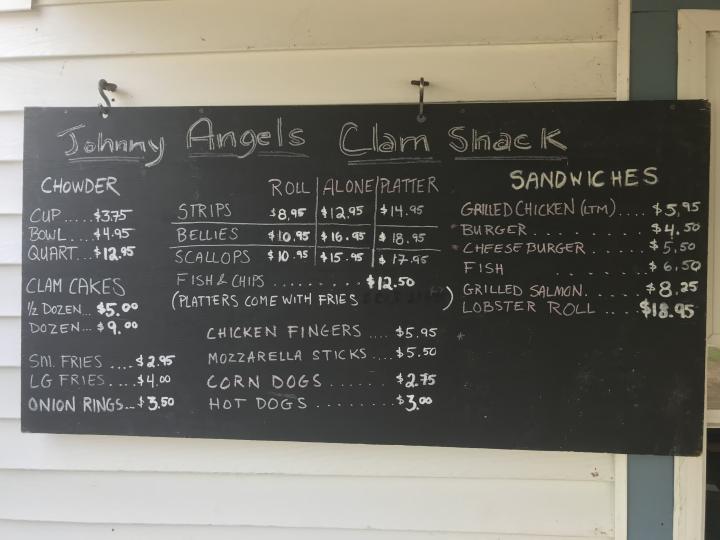 Johnny Angels Clam Shack
CHOWDER
CUP.....$3.75
BOWL....$4.95
QUART...$12.95
CLAM CAKES
1/2 DOZEN...$5.00
DOZEN...$9.00
SM. FRIES ....$2.95
LG FRIES....$4.00
ONION RINGS...$3.50
ROLL ALONE PLATTER
STRIPS $8.95 $12.95 $14.95
BELLIES $10.95 $16.95 $18.95
SCALLOPS $10.95 $15.95 $17.95
FISH & CHIPS ..........$12.50
(PLATTERS COME WITH FRIES )
CHICKEN FINGERS ....$5.95
MOZZARELLA STICKS ....$5.50
CORN DOGS .......$2.75
HOT DOGS .........$3.00
SANDWICHES
GRILLED CHICKEN (LTM)....$5.95
* BURGER ..........$4.50
* CHEESE BURGER .......$5.50
FISH .......$6.50
GRILLED SALMON......$8.25
LOBSTER ROLL ....$18.95
*